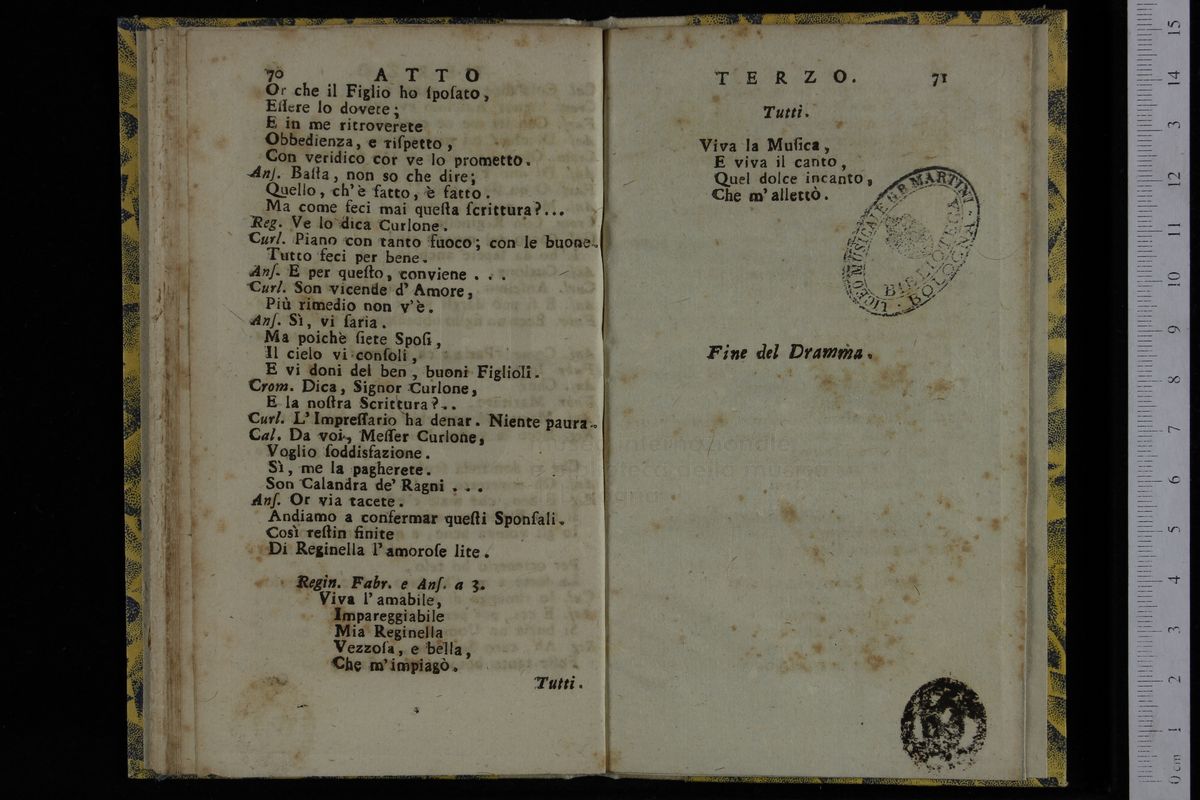 70 ATTO
Or che il Figlio ho ſpoſato,
Eſſere lo dovete;
E in me ritroverete
Obbedienza, e riſpetto,
Con veridico cor ve lo prometto.
Anſ. Baſta, non so che dire;
Quello, ch'è fatto, è fatto.
Ma come feci mai queſta ſcrittura?...
Reg. Ve lo dica Curlone.
Curl. Piano con tanto fuoco; con le buone.
Tutto feci per bene.
Anſ. E per queſto, conviene . . .
Curl. Son vicende d'Amore,
Più rimedio non v'è.
Anſ. Sì, vi ſaria.
Ma poichè ſiete Spoſi,
Il cielo vi conſoli,
E vi doni del ben, buoni Figlioli.
Crom. Dica, Signor Curlone,
E la noſtra Scrittura?..
Curl. L'Impreſſario ha denar. Niente paura.
Cal. Da voi, Meſſer Curlone,
Voglio ſoddisfazione.
Sì, me la pagherete.
Son Calandra de' Ragni . . .
Anſ. Or via tacete.
Andiamo a confermar queſti Sponſali.
Così reſtin finite
Di Reginella l'amoroſe lite.
Regin. Fabr. e Anſ. a 3.
Viva l'amabile,
Impareggiabile
Mia Reginella
Vezzoſa, e bella,
Che m'impiagò.
Tutti.
TERZO. 71
Tutti.
Viva la Muſica,
E viva il canto,
Quel dolce incanto,
Che m'allettò.
LICEO MUSICALE G.B. MARTINI - BOLOGNA -
BIBLIOTECA
Fine del Dramma.
0 cm 1 2 3 4 5 6 7 8 9 10 11 12 3 14 15